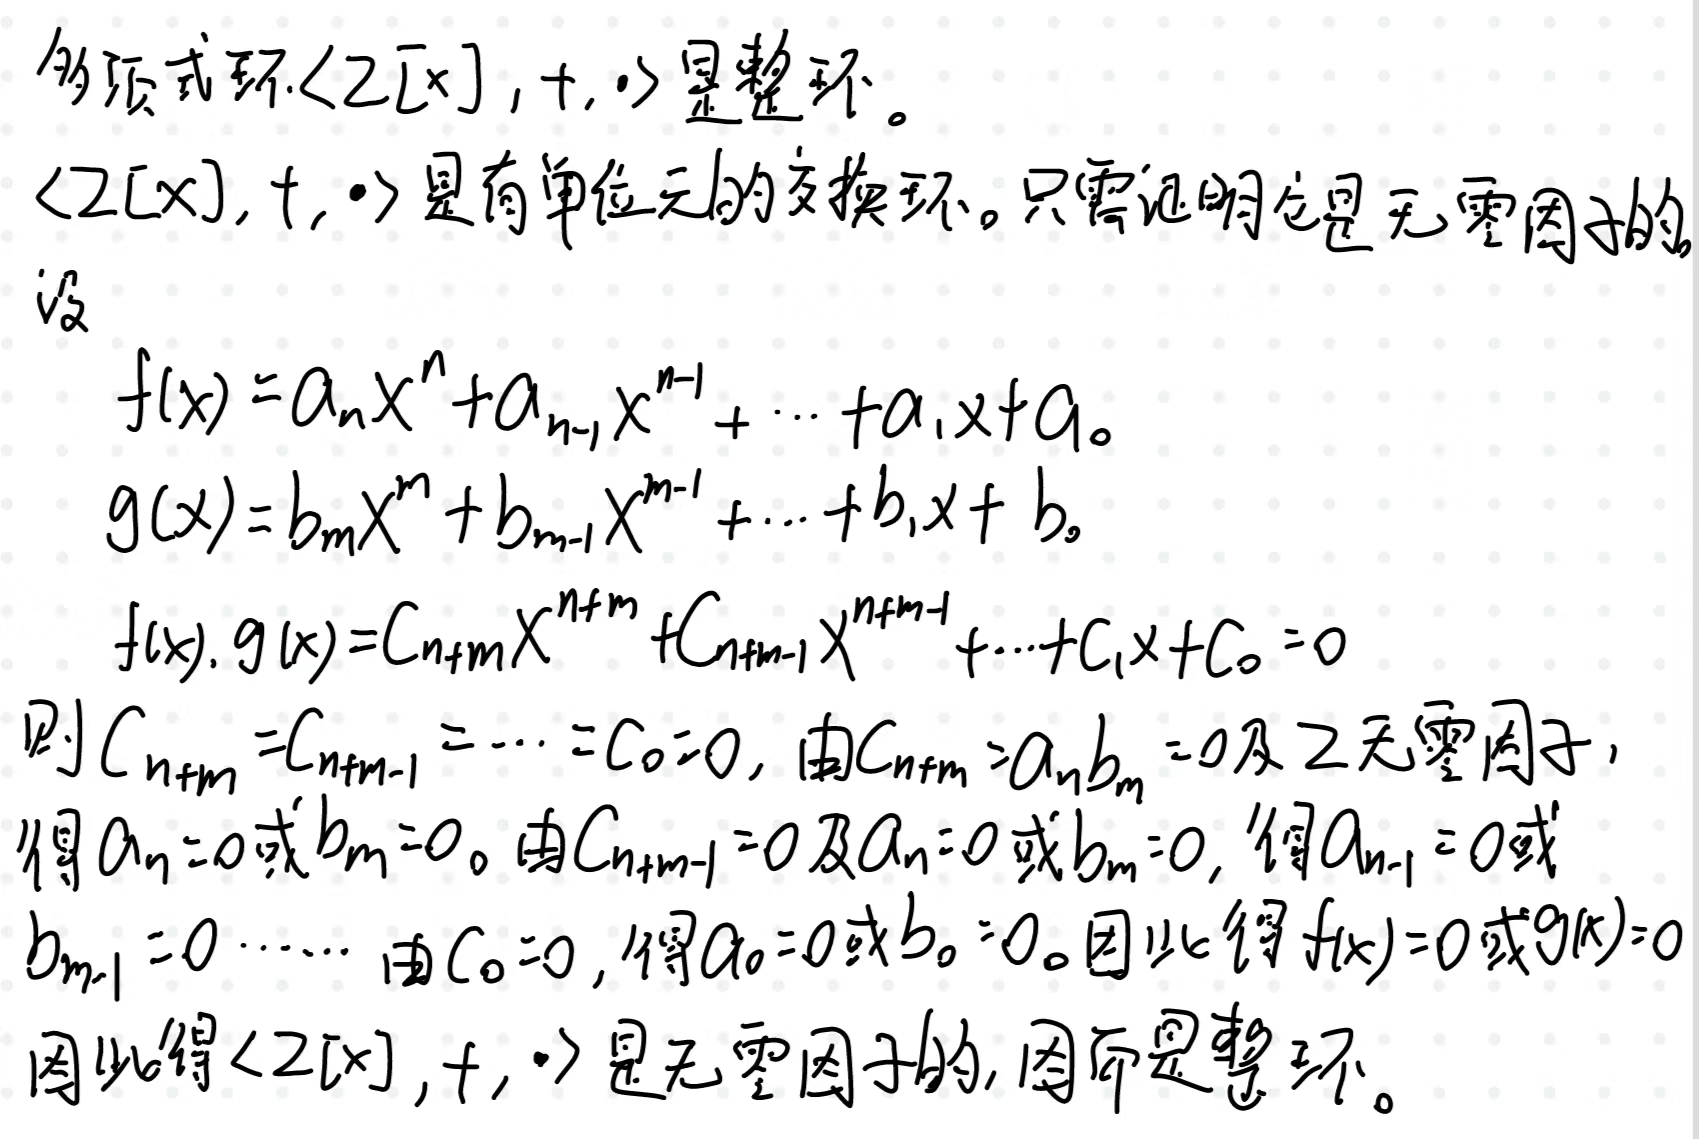 多项式环<Z[x],+,·>是整环。
<Z[x],+,·>是有单位元的交换环。只需证明它是无零因子的。
设
f(x)=aₙxⁿ+aₙ₋₁xⁿ⁻¹+⋯+a₁x+a₀
g(x)=bₘxᵐ+bₘ₋₁xᵐ⁻¹+⋯+b₁x+b₀
f(x)·g(x)=Cₙ₊ₘxⁿ⁺ᵐ+Cₙ₊ₘ₋₁xⁿ⁺ᵐ⁻¹+⋯+C₁x+C₀=0
则Cₙ₊ₘ=Cₙ₊ₘ₋₁=⋯=C₀=0,由Cₙ₊ₘ=aₙbₘ=0及Z无零因子,
得aₙ=0或bₘ=0。由Cₙ₊ₘ₋₁=0及aₙ=0或bₘ=0,得aₙ₋₁=0或
bₘ₋₁=0⋯⋯由C₀=0,得a₀=0或b₀=0。因此得f(x)=0或g(x)=0
因此得<Z[x],+,·>是无零因子的,因而是整环。